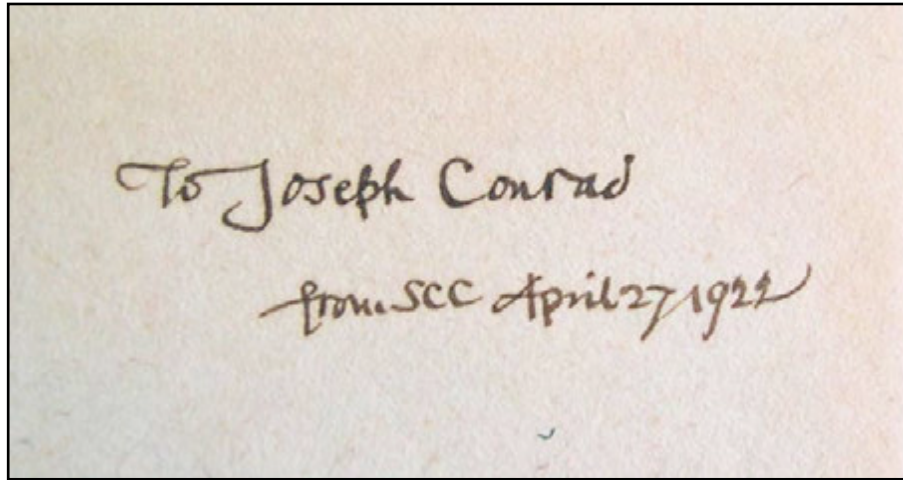 To Joseph Conrad
from SCC April 27 1922